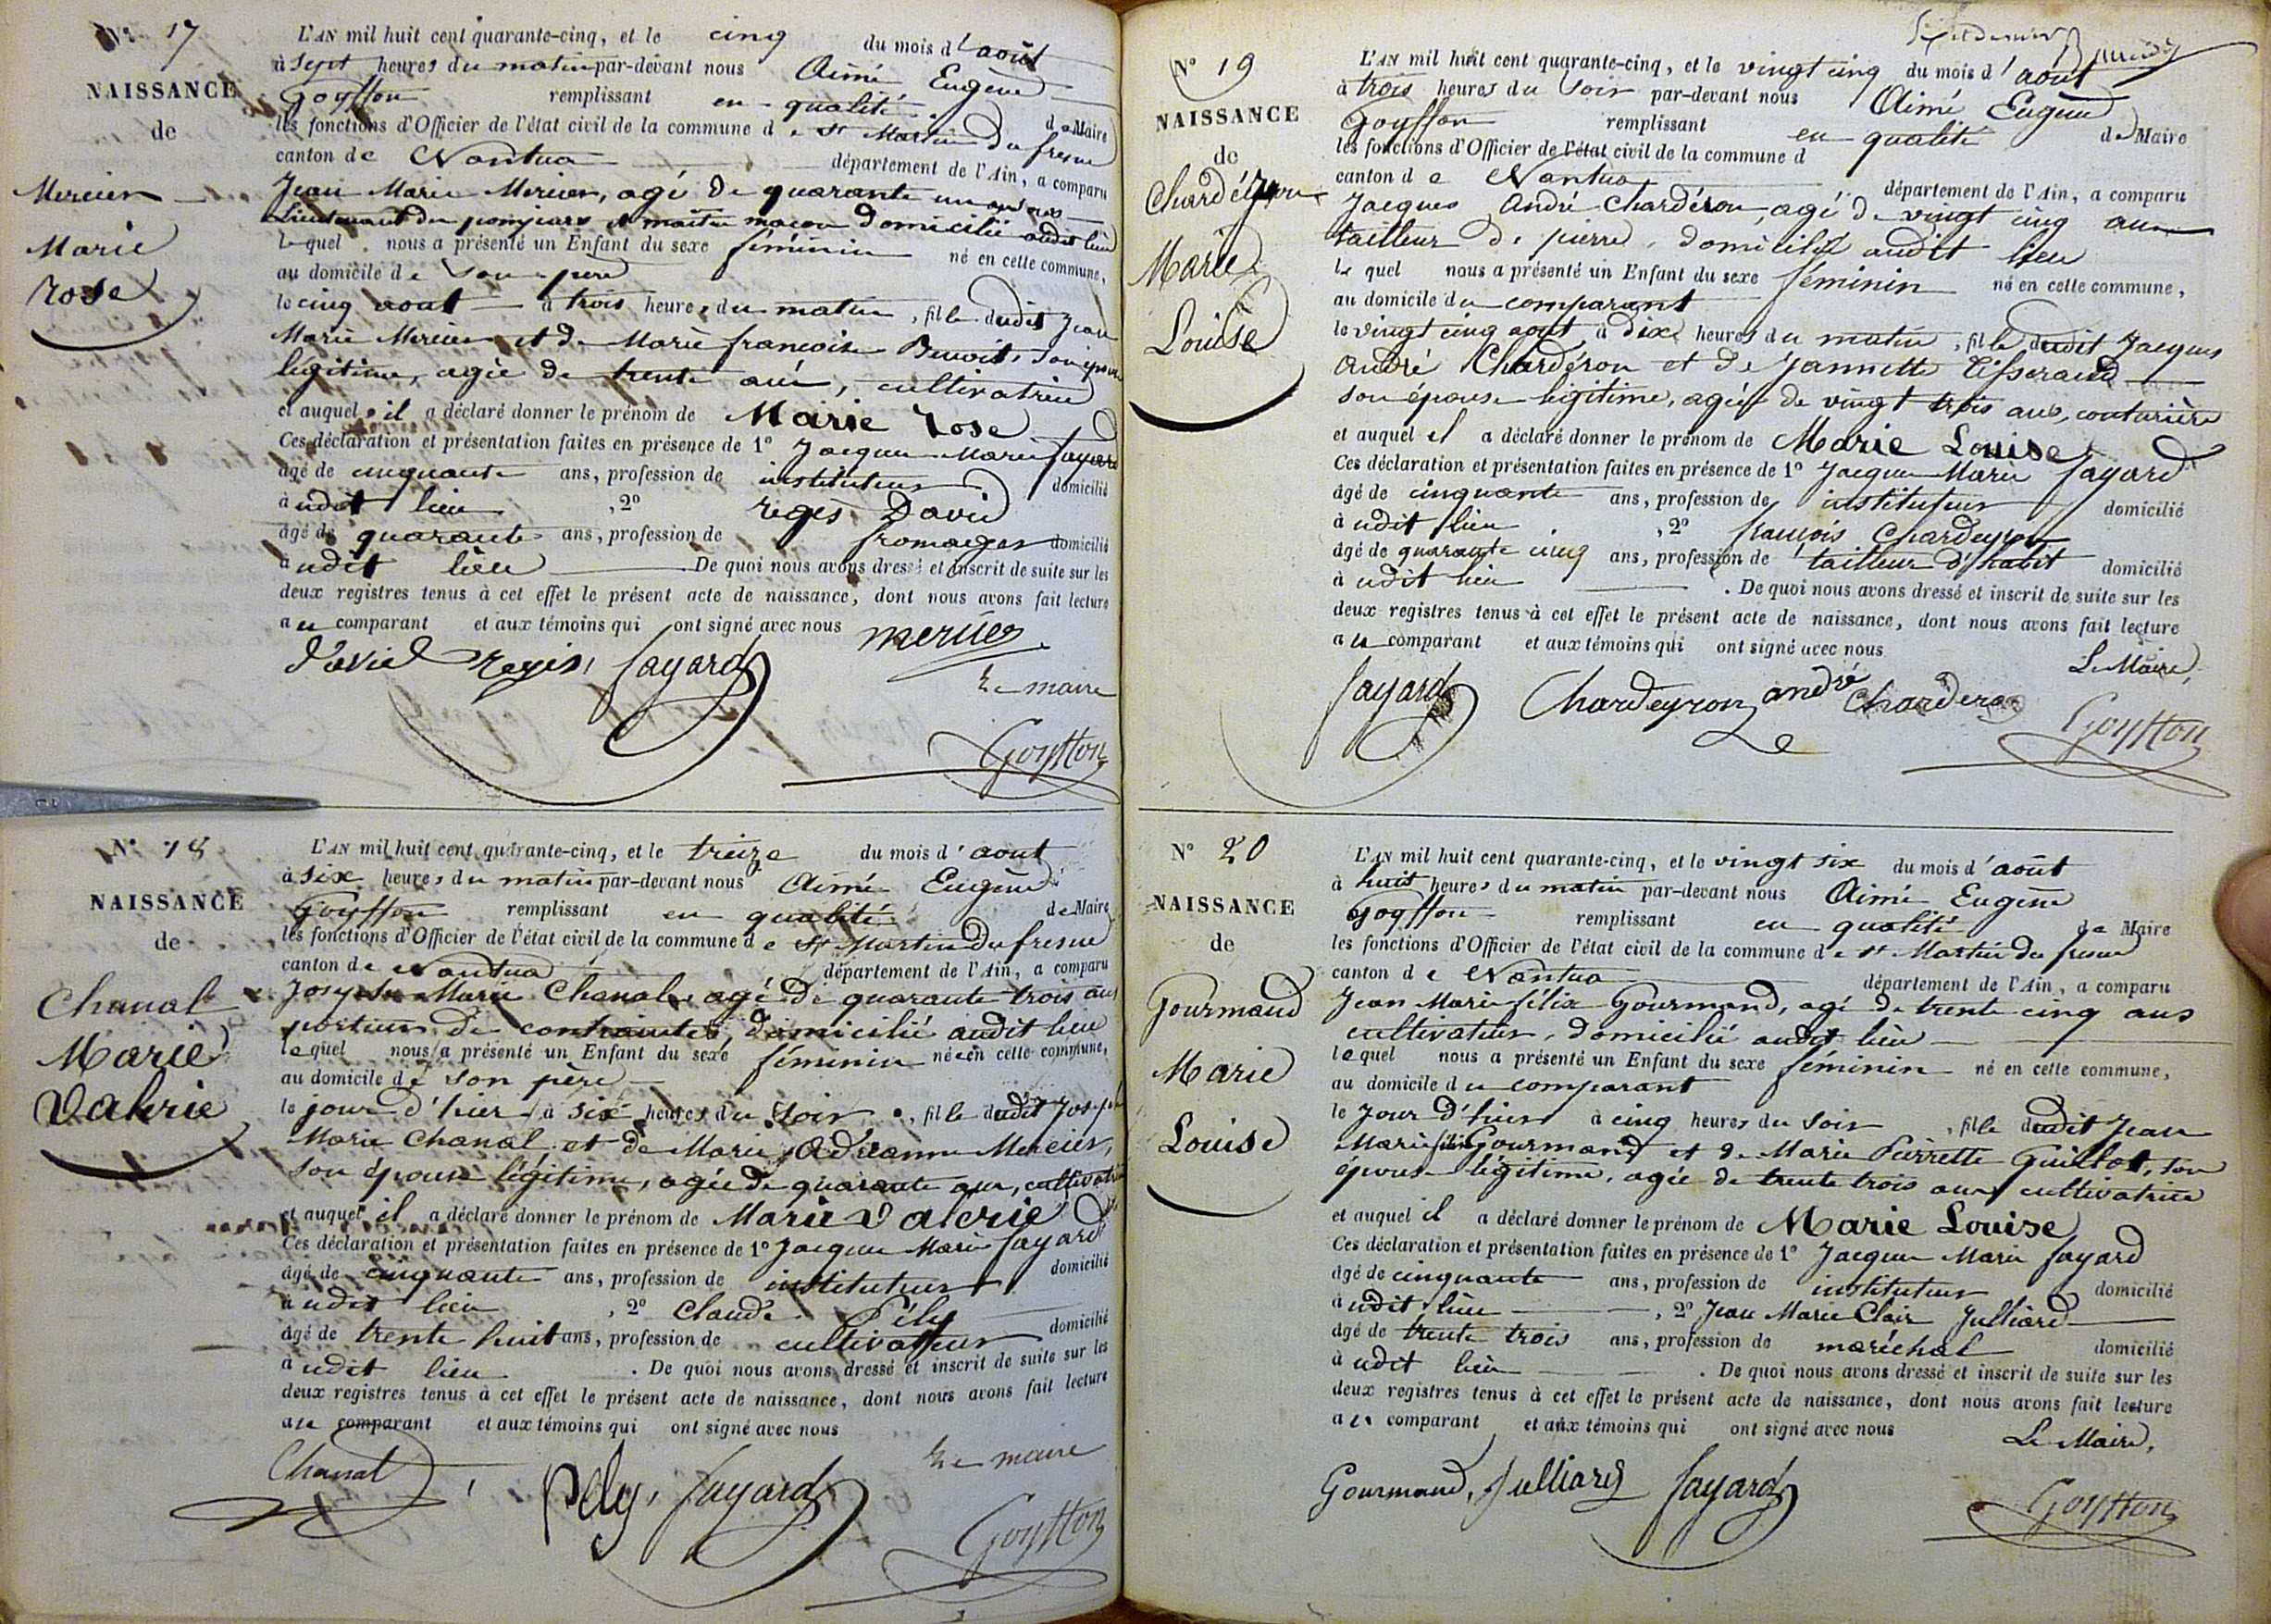 N° 17
NAISSANCE
de
Mercier
Marie
rose
L'AN mil huit cent quarante-cinq, et le cinq du mois d'août
à sept heures du matin par-devant nous Aimé Eugène
Goyffon remplissant en qualité de Maire
les fonctions d'Officier de l'état civil de la commune de St Martin du fresne
canton de Nantua département de l'Ain, a comparu
Jean Marie Mercier, agé de quarante un ans
Lieutenant du pompiers et maitre maçon domicilié audit lieu
lequel nous a présenté un Enfant du sexe féminin né en cette commune,
au domicile de son père
le cinq aout à trois heures du matin, fille dudit Jean
Marie Mercier et de Marie francoise Benoit, son épouse
légitime, agée de trente ans, cultivatrice
et auquel il a déclaré donner le prénom de Marie rose
Ces déclaration et présentation faites en présence de 1° Jacques Marie fayard
âgé de cinquante ans, profession de instituteur domicilié
audit lieu, 2° régis David
âgé de quarante ans, profession de fromager domicilié
audit lieu De quoi nous avons dressé et inscrit de suite sur les
deux registres tenus à cet effet le présent acte de naissance, dont nous avons fait lecture
au comparant et aux témoins qui ont signé avec nous mercier
David regis, fayard
Le maire
Goyffon
N° 18
NAISSANCE
de
Chanal
Marie
Valérie
L'AN mil huit cent quarante-cinq, et le treize du mois d'aout
à six heures du matin par-devant nous Aimé Eugène
Goyffon remplissant en qualité de Maire
les fonctions d'Officier de l'état civil de la commune de St Martin du fresne
canton de Nantua département de l'Ain, a comparu
Joseph Marie Chanal, agé de quarante trois ans
porteur de contraintes, domicilié audit lieu
lequel nous a présenté un Enfant du sexe féminin né en cette commune,
au domicile de son père
le jour d'hier à six heures du soir, fille dudit Joseph
Marie Chanal et de Marie Adrianne Mercier,
son épouse légitime, agée de quarante ans, cultivatrice
et auquel il a déclaré donner le prénom de Marie Valérie
Ces déclaration et présentation faites en présence de 1° Jacques Marie fayard
âgé de cinquante ans, profession de instituteur domicilié
audit lieu, 2° Claude Pély
âgé de trente huit ans, profession de cultivateur domicilié
audit lieu. De quoi nous avons dressé et inscrit de suite sur les
deux registres tenus à cet effet le présent acte de naissance, dont nous avons fait lecture
au comparant et aux témoins qui ont signé avec nous
Le maire
Chanal, Pely, fayard
Goyffon
N° 19
NAISSANCE
de
Marie
Louise
L'AN mil huit cent quarante-cinq, et le vingt cinq du mois d'août
à trois heures du soir par-devant nous Aimé Eugène
Goyffon remplissant en qualité de Maire
les fonctions d'Officier de l'état civil de la commune d
canton de Nantua département de l'Ain, a comparu
Jacques André Chardéron, agé de vingt cinq ans
tailleur de pierre, domicilié audit lieu
lequel nous a présenté un Enfant du sexe féminin né en cette commune,
au domicile du comparant
le vingt cinq aout à dix heures du matin, fille dudit Jacques
André Chardéron et de Jannette Tisserand
son épouse légitime, agée de vingt trois ans, couturière
et auquel il a déclaré donner le prénom de Marie Louise
Ces déclaration et présentation faites en présence de 1° Jacques Marie fayard
âgé de cinquante ans, profession de instituteur domicilié
audit lieu, 2° françois Chardeyron
âgé de quarante cinq ans, profession de tailleur d'habit domicilié
audit lieu. De quoi nous avons dressé et inscrit de suite sur les
deux registres tenus à cet effet le présent acte de naissance, dont nous avons fait lecture
au comparant et aux témoins qui ont signé avec nous
Le Maire,
fayard Chardeyron andré Charderon
Goyffon
N° 20
NAISSANCE
de
Gourmand
Marie
Louise
L'AN mil huit cent quarante-cinq, et le vingt six du mois d'août
à huit heures du matin par-devant nous Aimé Eugène
Goyffon remplissant en qualité de Maire
les fonctions d'Officier de l'état civil de la commune de St Martin du fresne
canton de Nantua département de l'Ain, a comparu
Jean Marie félix Gourmand, agé de trente cinq ans
cultivateur, domicilié audit lieu
lequel nous a présenté un Enfant du sexe féminin né en cette commune,
au domicile du comparant
le jour d'hier à cinq heures du soir, fille dudit Jean
Marie félix Gourmand et de Marie Pierrette Guillot, son
épouse légitime, agée de trente trois ans cultivatrice
et auquel il a déclaré donner le prénom de Marie Louise
Ces déclaration et présentation faites en présence de 1° Jacques Marie fayard
âgé de cinquante ans, profession de instituteur domicilié
audit lieu, 2° Jean Marie Clair Julliard
âgé de trente trois ans, profession de maréchal domicilié
audit lieu. De quoi nous avons dressé et inscrit de suite sur les
deux registres tenus à cet effet le présent acte de naissance, dont nous avons fait lecture
au comparant et aux témoins qui ont signé avec nous
Le Maire,
Gourmand, Julliard fayard
Goyffon